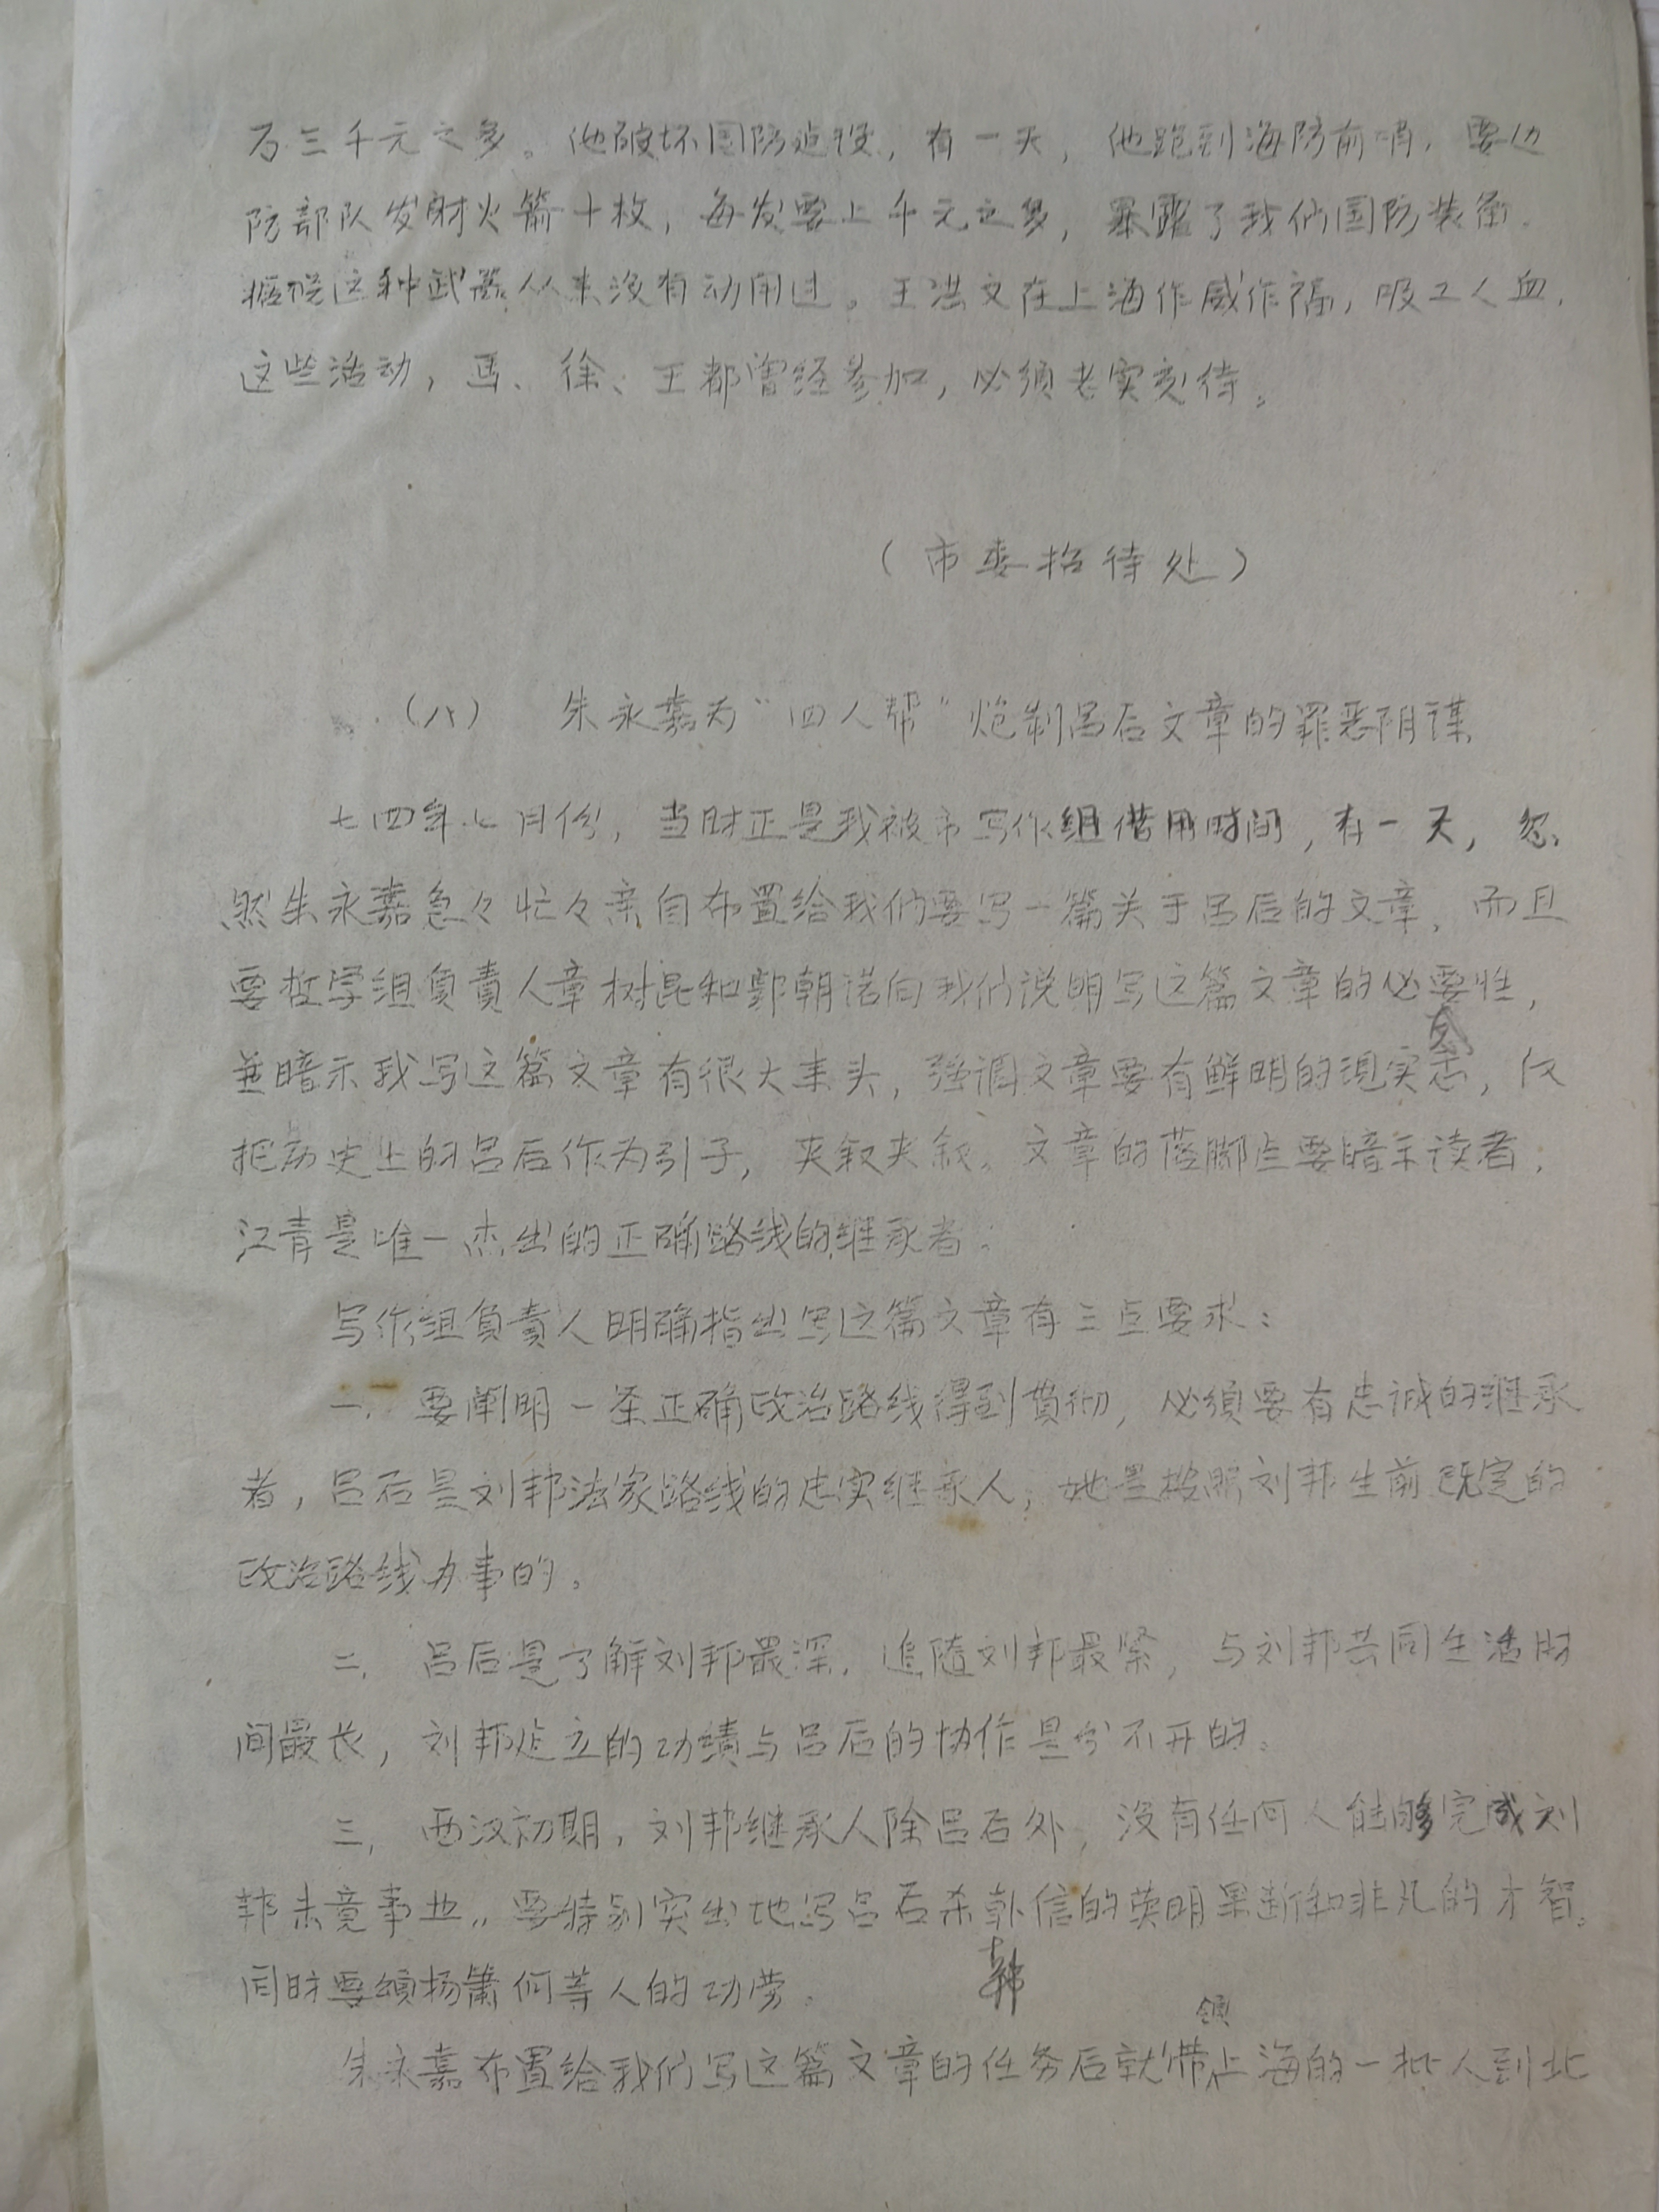 万三千元之多。他破坏国防建设，有一天，他跑到海防前哨，要边
防部队发射火箭十枚，每发要上千元之多，暴露了我们国防装备。
据说这种武器从来没有动用过。王洪文在上海作威作福，吸工人血，
这些活动，马、徐、王都曾经参加，必须老实交待。
（市委招待处）
（八） 朱永嘉为“四人帮”炮制吕后文章的罪恶阴谋
七四年七月份，当时正是我被市写作组借用时间，有一天，忽
然朱永嘉急々忙々亲自布置给我们要写一篇关于吕后的文章，而且
要哲学组负责人章树昆和鄂朝诺向我们说明写这篇文章的必要性，
並暗示我写这篇文章有很大来头，强调文章要有鲜明的现实意，仅
把历史上的吕后作为引子，夹叙夹叙。文章的落脚点要暗示读者，
江青是唯一杰出的正确路线的继承者。
写作组负责人明确指出写这篇文章有三点要求：
一、要阐明一条正确政治路线得到贯彻，必须要有忠诚的继承
者，吕后是刘邦法家路线的忠实继承人，她是按照刘邦生前既定的
政治路线办事的。
二、吕后是了解刘邦最深，追随刘邦最紧，与刘邦共同生活时
间最长，刘邦建立的功绩与吕后的协作是分不开的。
三、西汉初期，刘邦继承人除吕后外，没有任何人能够完成刘
邦未竟事业。要特别突出地写吕后杀韩信的英明果断和非凡的才智。
同时要颂扬萧何等人的功劳。
韩
领
朱永嘉布置给我们写这篇文章的任务后就带上海的一批人到北